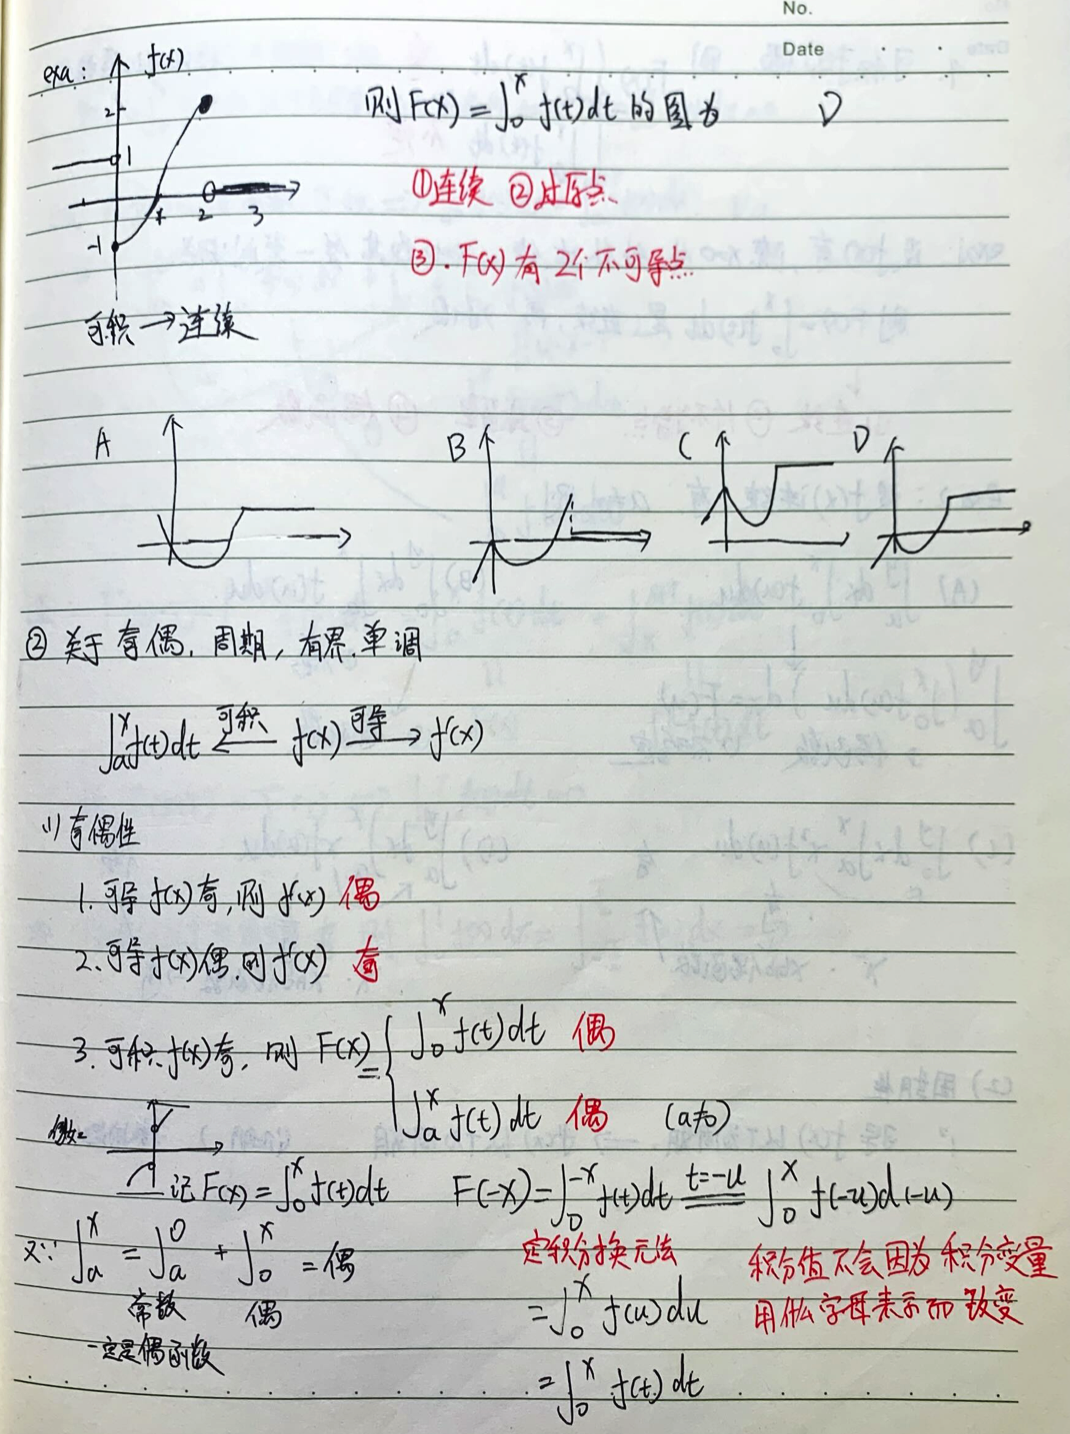 No.
Date
exa: f(x)
2
1
-1
1 2 3
则 F(x) = ∫₀ˣ f(t)dt 的图为 D
①连续 ②过原点
③. F(x) 有 2个不可导点
可积 → 连续
A B C D
② 关于 奇偶, 周期, 有界, 单调
∫ₐˣ f(t)dt ←可积— f(x) —可导→ f'(x)
(1) 奇偶性
1. 可导 f(x) 奇, 则 f'(x) 偶
2. 可导 f(x) 偶, 则 f'(x) 奇
3. 可积 f(x) 奇, 则 F(x) = { ∫₀ˣ f(t)dt 偶
∫ₐˣ f(t)dt 偶 (a≠0)
记 F(x) = ∫₀ˣ f(t)dt F(-x) = ∫₀⁻ˣ f(t)dt t=-u ∫₀ˣ f(-u)d(-u)
又∵ ∫ₐˣ = ∫ₐ⁰ + ∫₀ˣ = 偶
常数 偶
一定是偶函数
定积分换元法
积分值不会因为积分变量
用什么字母表示而改变
= ∫₀ˣ f(u)du
= ∫₀ˣ f(t)dt